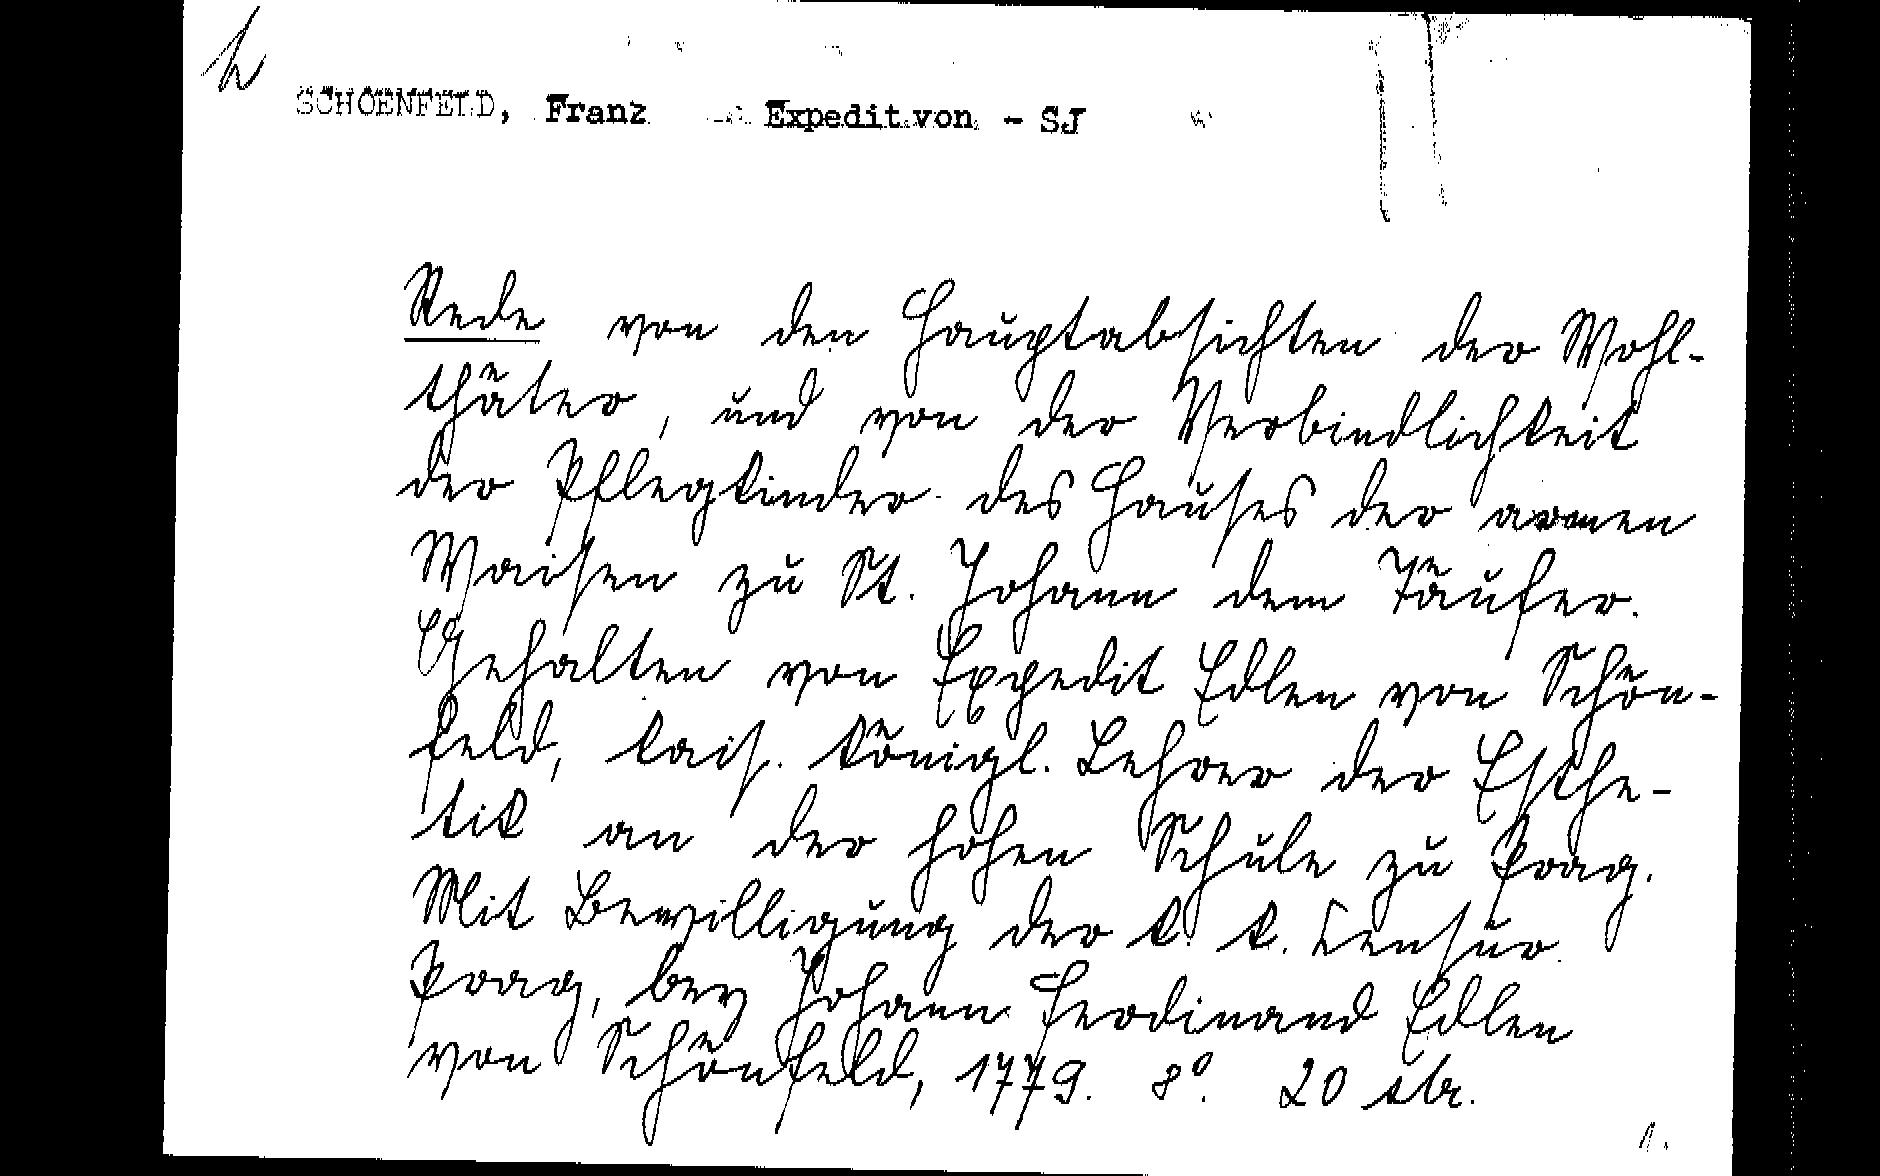 h
SCHOENFELD, Franz Expedit von - SJ
Rede von den Hauptabsichten der Wohl-
thäter, und von der Verbindlichkeit
der Pflegkinder des Hauses der armen
Waisen zu St. Johann dem Täufer.
Gehalten von Expedit Edlen von Schön-
feld, kais. königl. Lehrer der Esthe-
tik an der hohen Schule zu Prag.
Mit Bewilligung der k. k. Censur.
Prag, bey Johann Ferdinand Edlen
von Schönfeld, 1779. 8°. 20 str.
1.